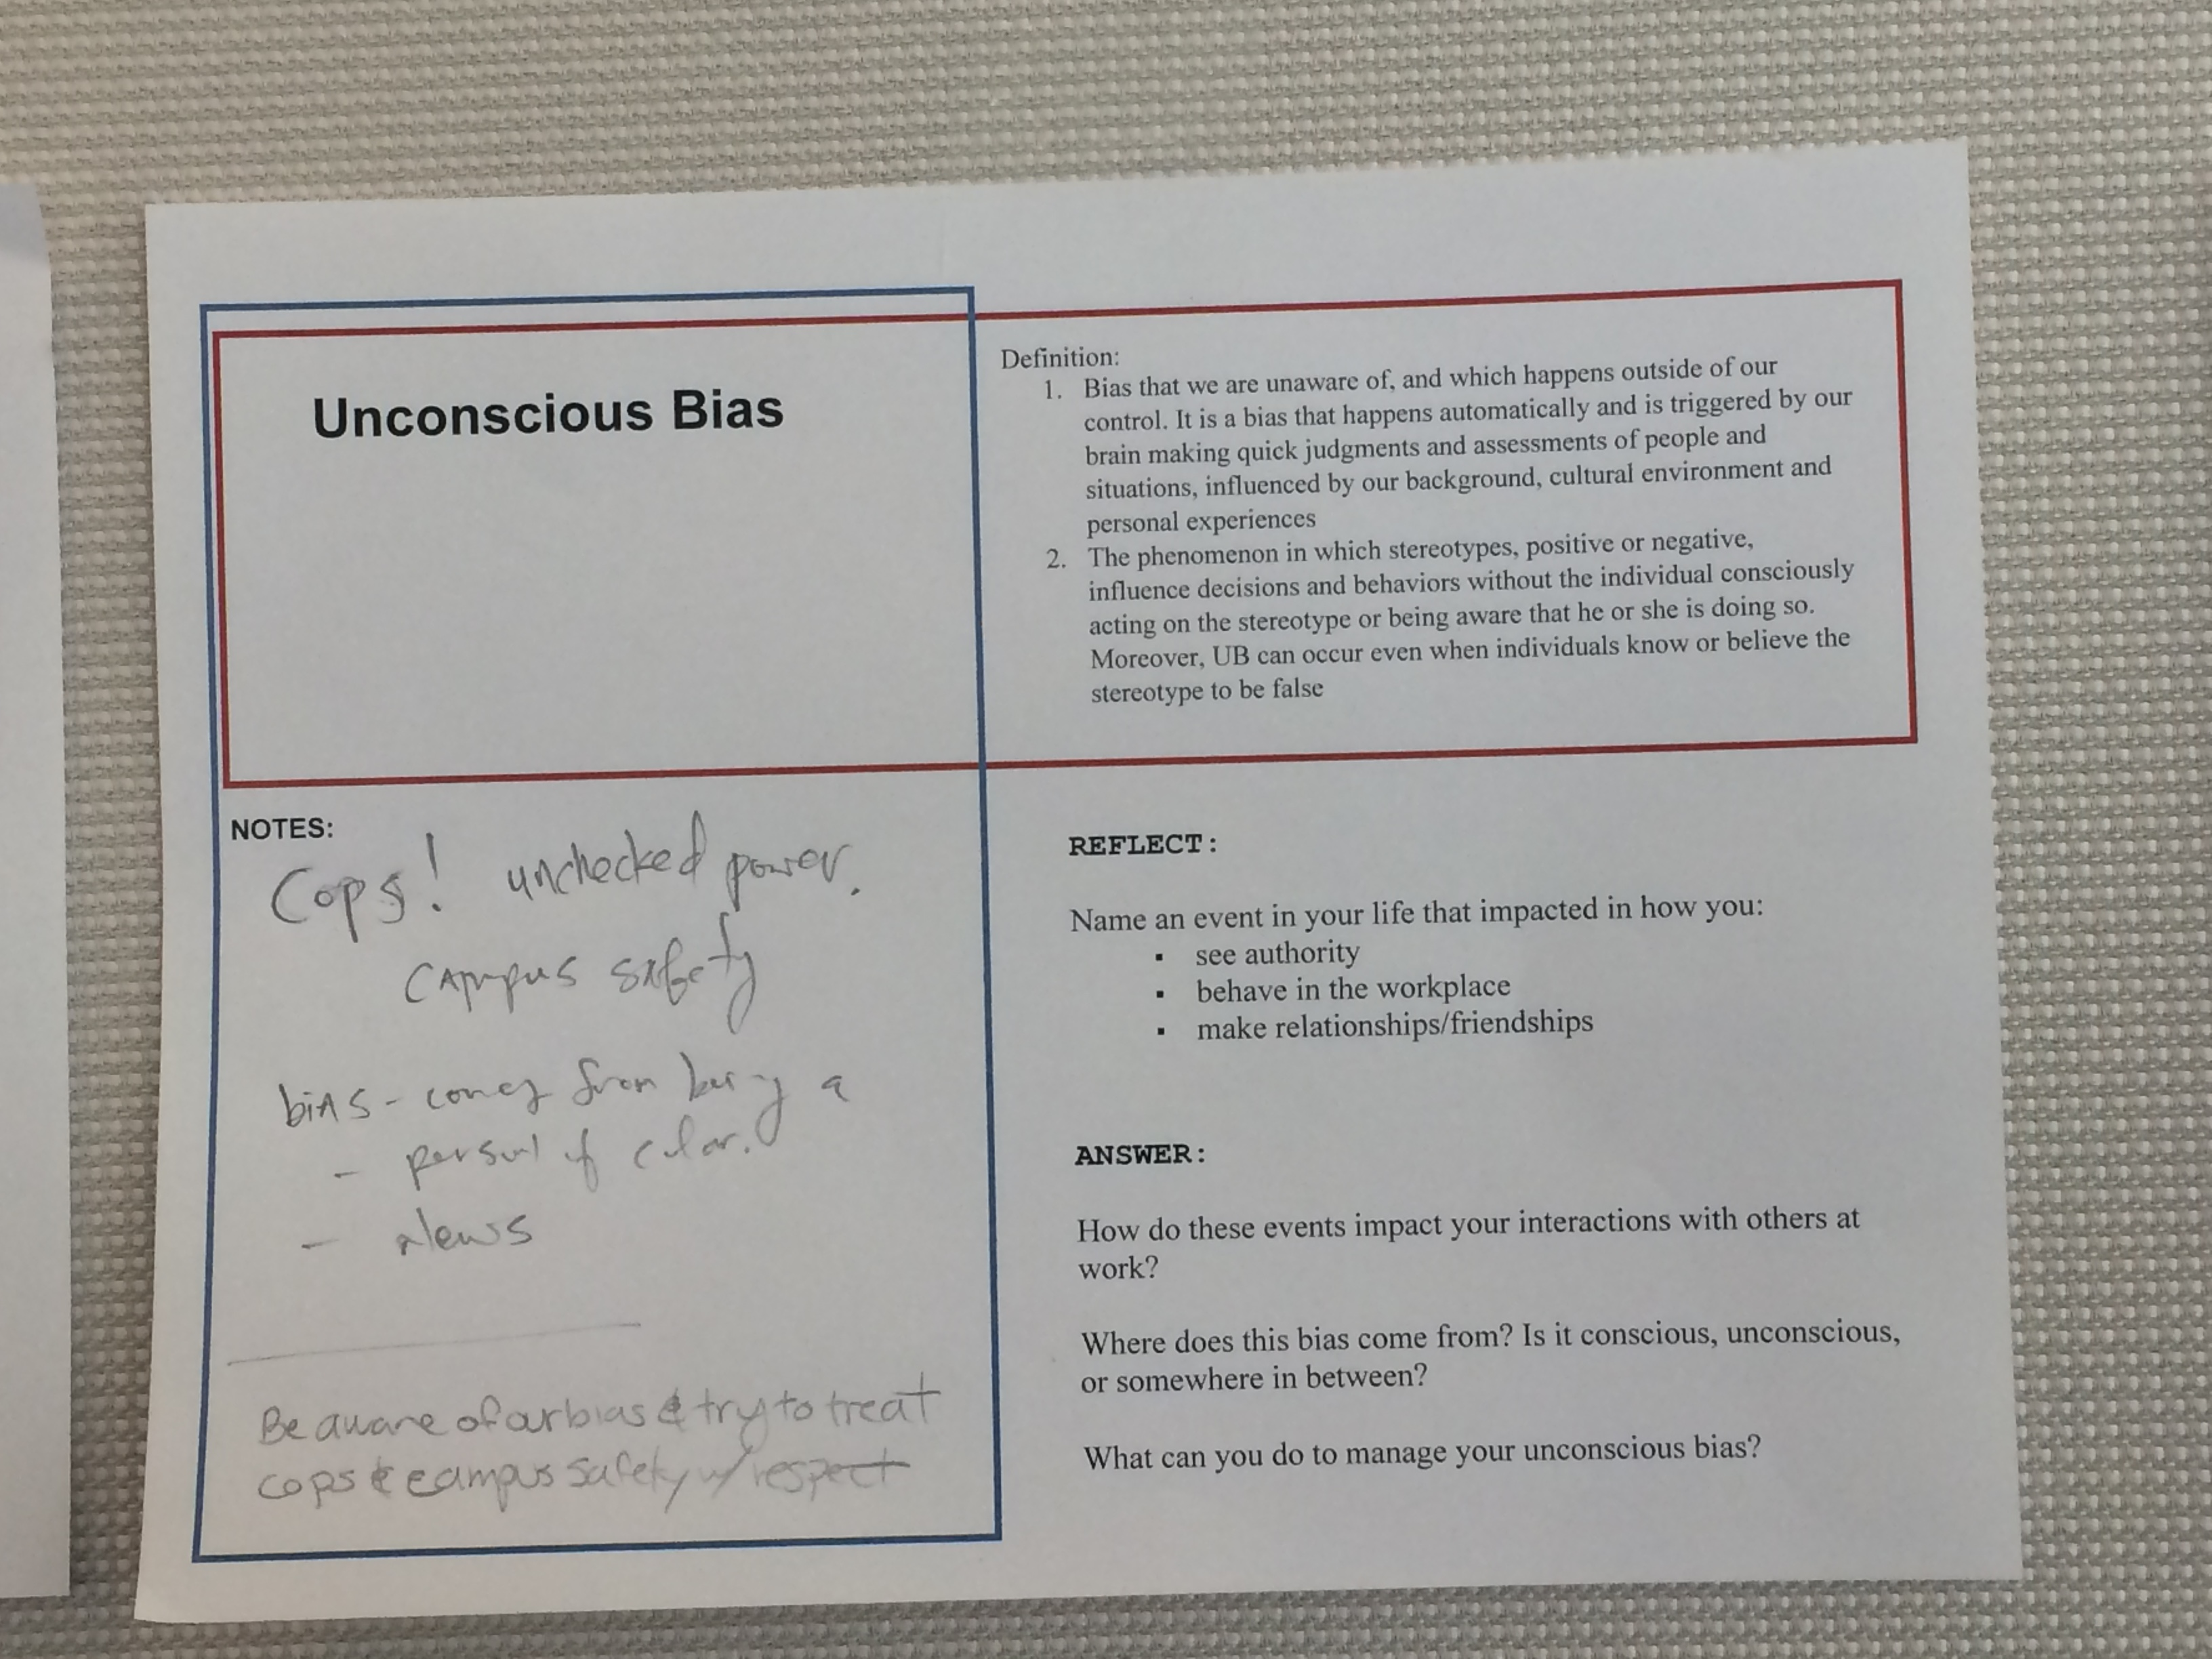 Unconscious Bias
Definition:
1. Bias that we are unaware of, and which happens outside of our
control. It is a bias that happens automatically and is triggered by our
brain making quick judgments and assessments of people and
situations, influenced by our background, cultural environment and
personal experiences
2. The phenomenon in which stereotypes, positive or negative,
influence decisions and behaviors without the individual consciously
acting on the stereotype or being aware that he or she is doing so.
Moreover, UB can occur even when individuals know or believe the
stereotype to be false
NOTES:
Cops! unchecked power.
Campus safety
bias - comes from being a
- person of color.
- News
Be aware of our bias & try to treat
cops & campus safety w/ respect
REFLECT:
Name an event in your life that impacted in how you:
▪ see authority
▪ behave in the workplace
▪ make relationships/friendships
ANSWER:
How do these events impact your interactions with others at
work?
Where does this bias come from? Is it conscious, unconscious,
or somewhere in between?
What can you do to manage your unconscious bias?